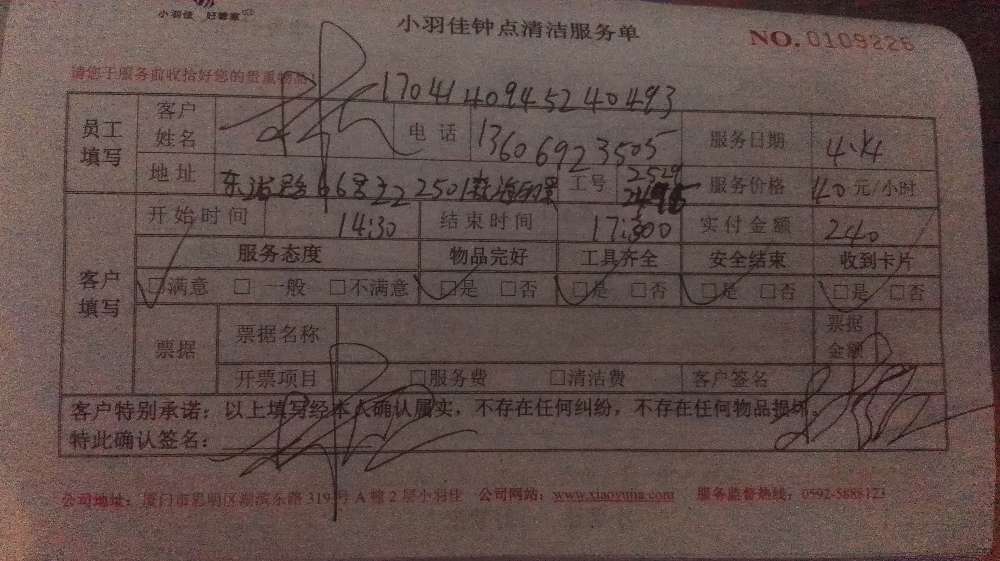 小羽佳 好慷家
小羽佳钟点清洁服务单
NO. 0109226
请您于服务前收拾好您的贵重物品!
1704140945240493
员工填写 客户姓名 电话 13606923505 服务日期 4.14
地址 66号 2501 工号 2529 服务价格 40元/小时
客户填写 开始时间 14:30 结束时间 17:300 实付金额 240
服务态度 物品完好 工具齐全 安全结束 收到卡片
□满意 □ 一般 □不满意 □是 □否 □是 □否 □是 □否 □是 □否
票据 票据名称 票据金额
开票项目 □服务费 □清洁费 客户签名
客户特别承诺：以上填写经本人确认属实，不存在任何纠纷，不存在任何物品损坏。
特此确认签名：
公司地址：厦门市思明区湖滨东路 319 号 A 幢 2 层小羽佳 公司网站：www.xiaoyujia.com 服务监督热线：0592-5888123